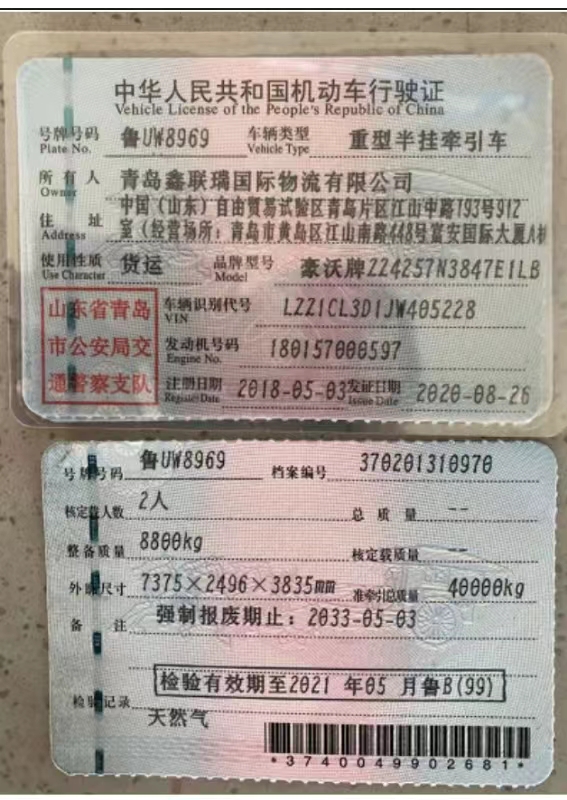 中华人民共和国机动车行驶证
Vehicle License of the People's Republic of China
号牌号码 鲁UW8969 车辆类型 重型半挂牵引车
Plate No. Vehicle Type
所有人 青岛鑫联瑞国际物流有限公司
Owner
住址 中国（山东）自由贸易试验区青岛片区江山中路193号912
Address 室（经营场所：青岛市黄岛区江山南路448号富安国际大厦A栋
使用性质 货运 品牌型号 豪沃牌ZZ4257N3847E1LB
Use Character Model
山东省青岛
市公安局交
通警察支队
车辆识别代号 LZZ1CL3D1JW405228
VIN
发动机号码 180157000597
Engine No.
注册日期 2018-05-03 发证日期 2020-08-26
Register Date Issue Date
号牌号码 鲁UW8969 档案编号 370201310970
核定载人数 2人 总质量 --
整备质量 8800kg 核定载质量 --
外廓尺寸 7375×2496×3835mm 准牵引总质量 40000kg
备注 强制报废期止：2033-05-03
检验有效期至2021年05月鲁B(99)
检验记录
天然气
*3740049902681*